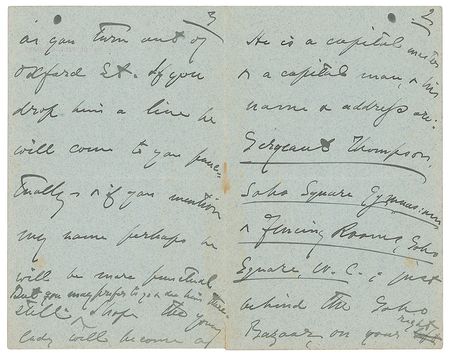 2
He is a capital master
& a capital man, & his
name & address are:
Sergeant Thompson,
Soho Square Gymnasium
& Fencing Rooms, Soho
Square, W.C.; just
behind the Soho
Bazaar, on your right
3
as you turn out of
Oxford St. If you
drop him a line he
will come to you punc-
tually & if you mention
my name perhaps he
will be more punctual
But you may prefer to go & see him there.
still. I hope the young
lady will become a